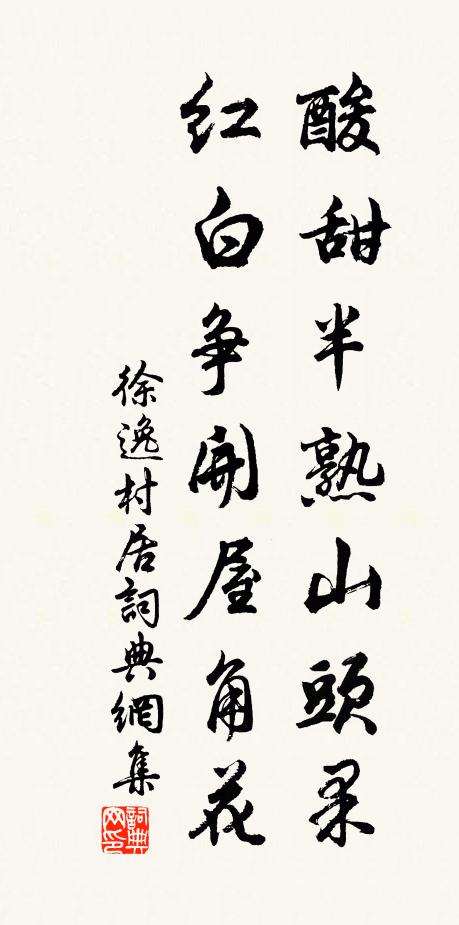 酸甜半熟山頭果
紅白爭開屋角花
徐逸村居詞典網集
詞典网印